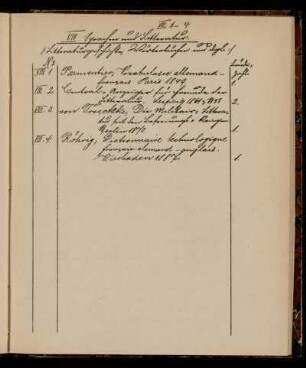 VIII 1-4
VIII. Sprachen und Litteratur.
(Litteraturgeschichte, Wörterbücher und dergl.)
No
VIII. 1 Parmentier, Vocabulaire allemand-
français Paris 1849. 1.
VIII. 2 Central- Anzeiger für Freunde der
Litteratur. Leipzig 2.
VIII. 3 von Troschke, Die Militair- Littera-
tur seit den Befreiungs- Kriegen
Berlin 1870 1.
VIII. 4 Röhrig, Dictionnaire technologique
français-allemand-anglais.
Wiesbaden 1887. 1.